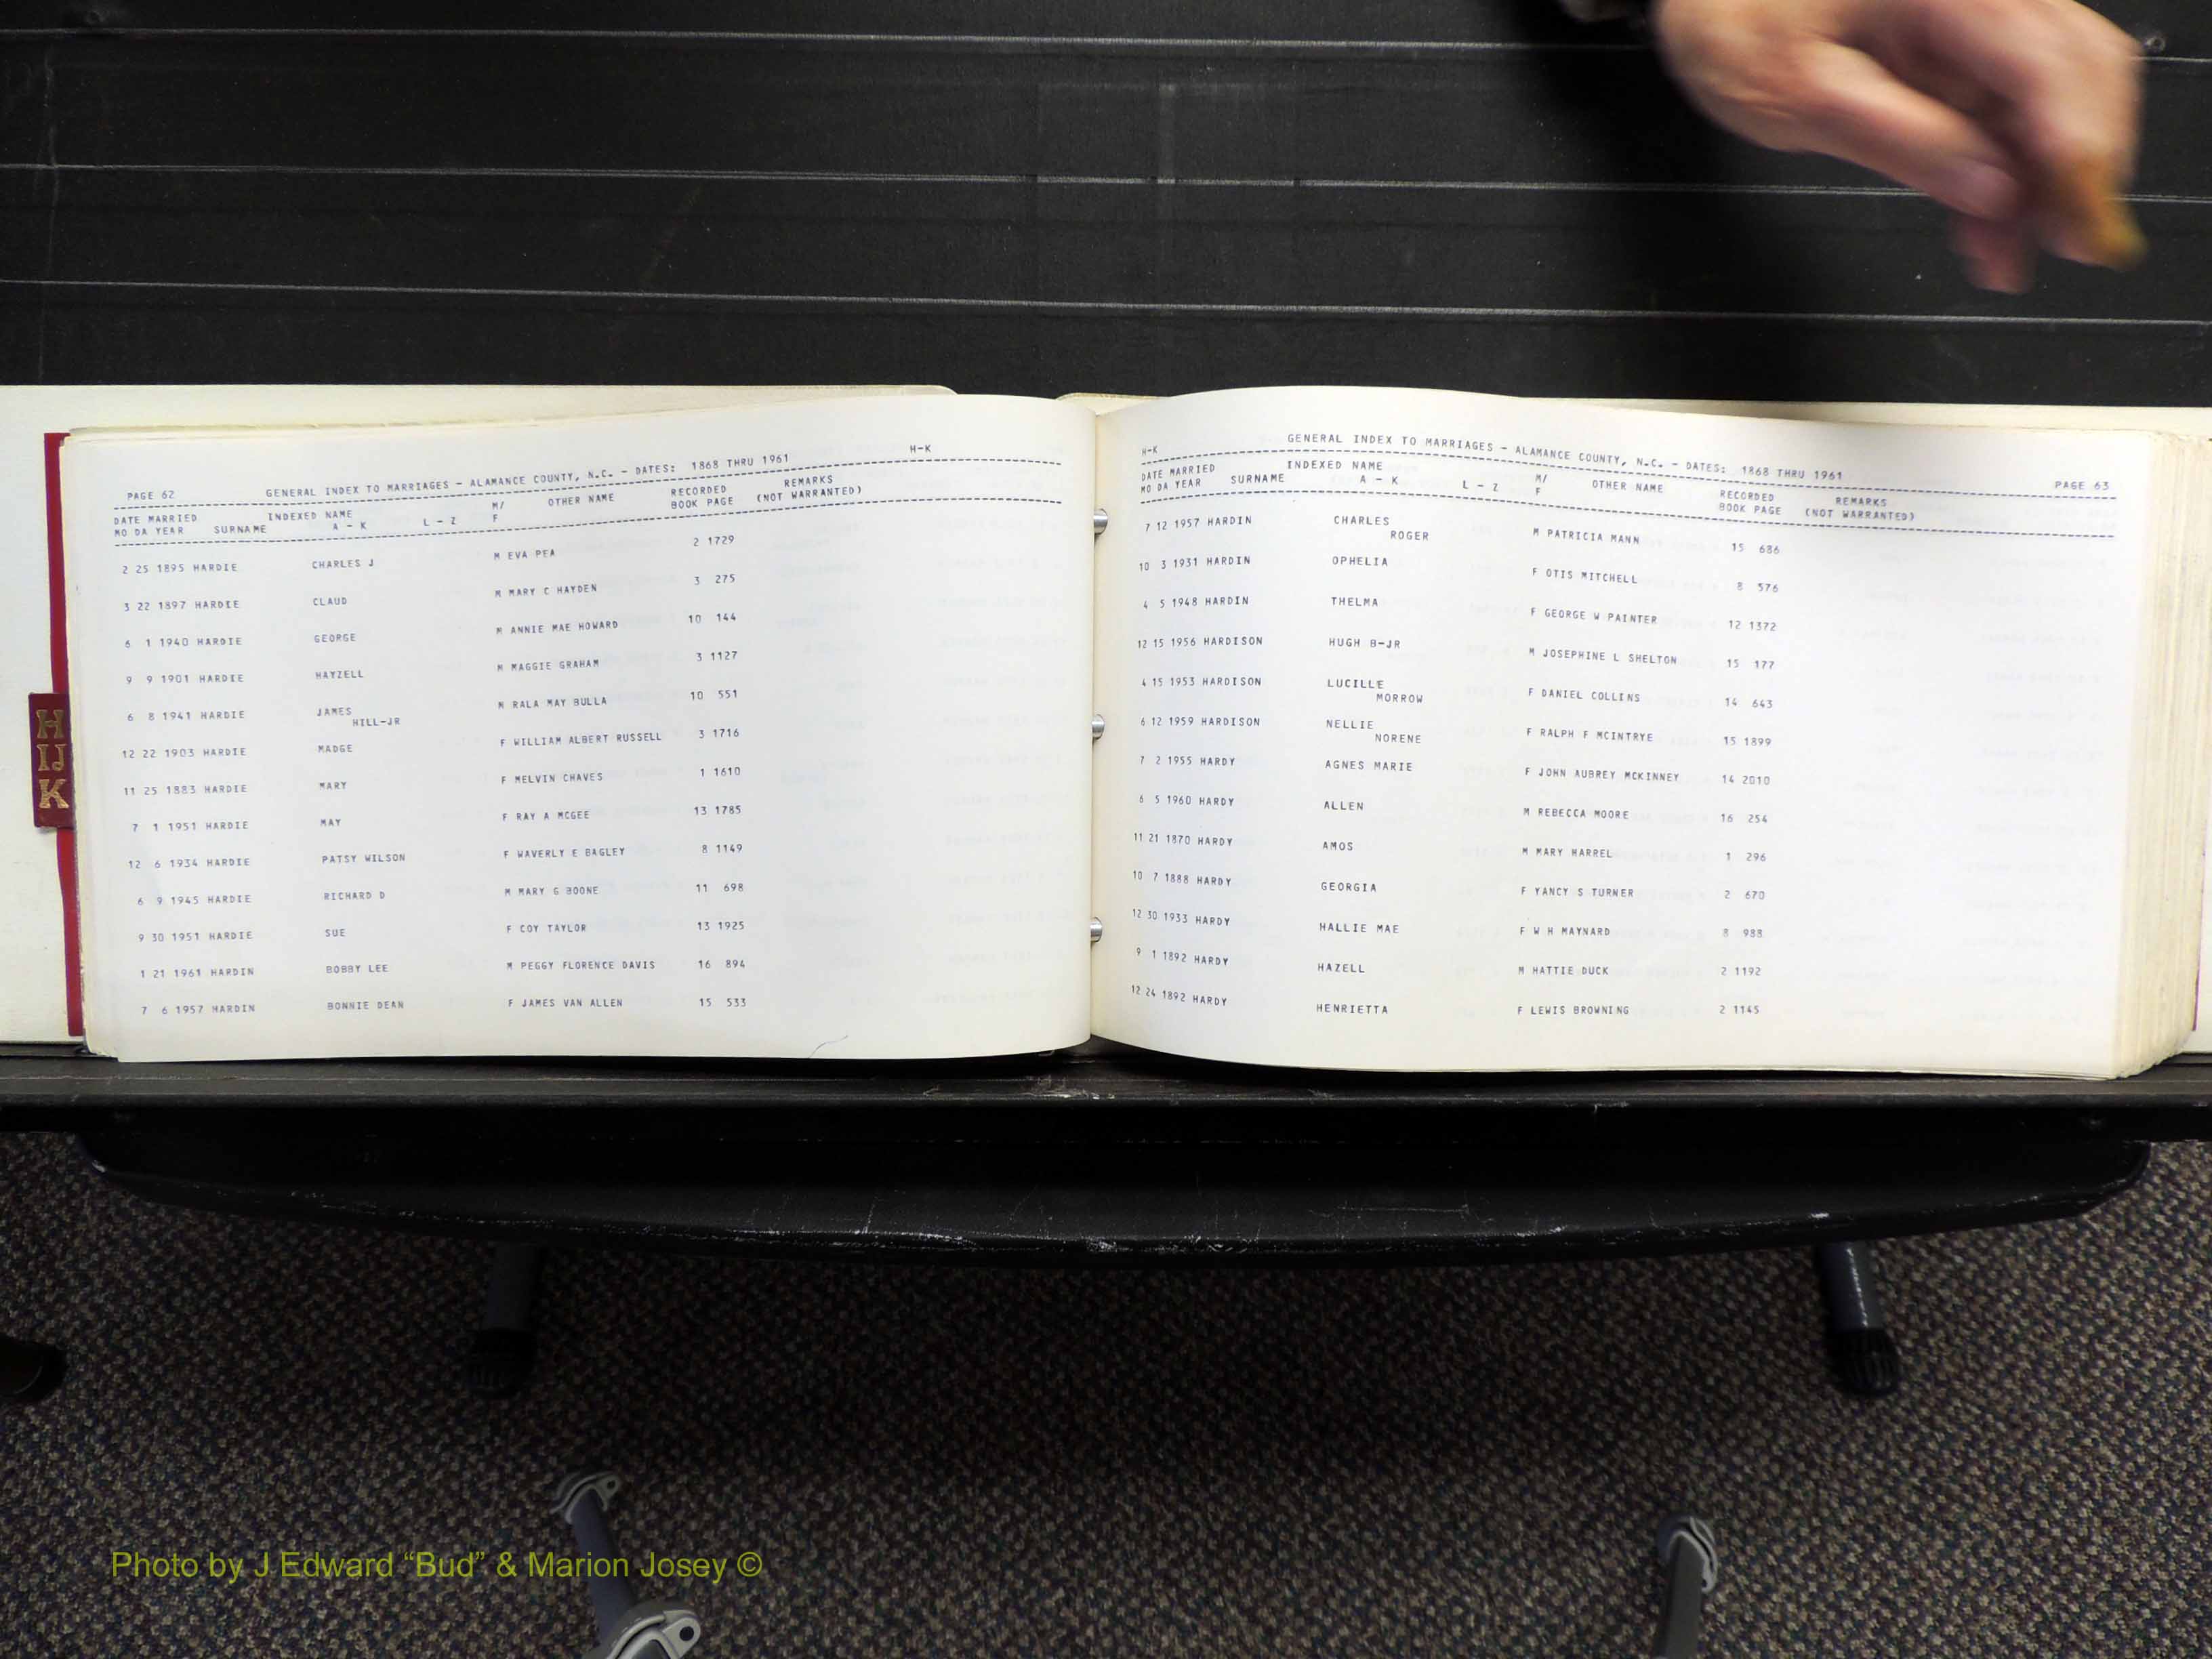 H
IJ
K
PAGE 62 GENERAL INDEX TO MARRIAGES - ALAMANCE COUNTY, N.C. - DATES: 1868 THRU 1961 H-K
DATE MARRIED INDEXED NAME M/ OTHER NAME RECORDED REMARKS
MO DA YEAR SURNAME A - K L - Z F BOOK PAGE (NOT WARRANTED)
2 25 1895 HARDIE CHARLES J M EVA PEA 2 1729
3 22 1897 HARDIE CLAUD M MARY C HAYDEN 3 275
6 1 1940 HARDIE GEORGE M ANNIE MAE HOWARD 10 144
9 9 1901 HARDIE HAYZELL M MAGGIE GRAHAM 3 1127
6 8 1941 HARDIE JAMES M RALA MAY BULLA 10 551
HILL-JR
12 22 1903 HARDIE MADGE F WILLIAM ALBERT RUSSELL 3 1716
11 25 1883 HARDIE MARY F MELVIN CHAVES 1 1610
7 1 1951 HARDIE MAY F RAY A MCGEE 13 1785
12 6 1934 HARDIE PATSY WILSON F WAVERLY E BAGLEY 8 1149
6 9 1945 HARDIE RICHARD D M MARY G BOONE 11 698
9 30 1951 HARDIE SUE F COY TAYLOR 13 1925
1 21 1961 HARDIN BOBBY LEE M PEGGY FLORENCE DAVIS 16 894
7 6 1957 HARDIN BONNIE DEAN F JAMES VAN ALLEN 15 533
H-K GENERAL INDEX TO MARRIAGES - ALAMANCE COUNTY, N.C. - DATES: 1868 THRU 1961 PAGE 63
DATE MARRIED INDEXED NAME M/ OTHER NAME RECORDED REMARKS
MO DA YEAR SURNAME A - K L - Z F BOOK PAGE (NOT WARRANTED)
7 12 1957 HARDIN CHARLES M PATRICIA MANN 15 686
ROGER
10 3 1931 HARDIN OPHELIA F OTIS MITCHELL 8 576
4 5 1948 HARDIN THELMA F GEORGE W PAINTER 12 1372
12 15 1956 HARDISON HUGH B-JR M JOSEPHINE L SHELTON 15 177
4 15 1953 HARDISON LUCILLE F DANIEL COLLINS 14 643
MORROW
6 12 1959 HARDISON NELLIE F RALPH F MCINTRYE 15 1899
NORENE
7 2 1955 HARDY AGNES MARIE F JOHN AUBREY MCKINNEY 14 2010
6 5 1960 HARDY ALLEN M REBECCA MOORE 16 254
11 21 1870 HARDY AMOS M MARY HARREL 1 296
10 7 1888 HARDY GEORGIA F YANCY S TURNER 2 670
12 30 1933 HARDY HALLIE MAE F W H MAYNARD 8 988
9 1 1892 HARDY HAZELL M HATTIE DUCK 2 1192
12 24 1892 HARDY HENRIETTA F LEWIS BROWNING 2 1145
Photo by J Edward “Bud” & Marion Josey ©